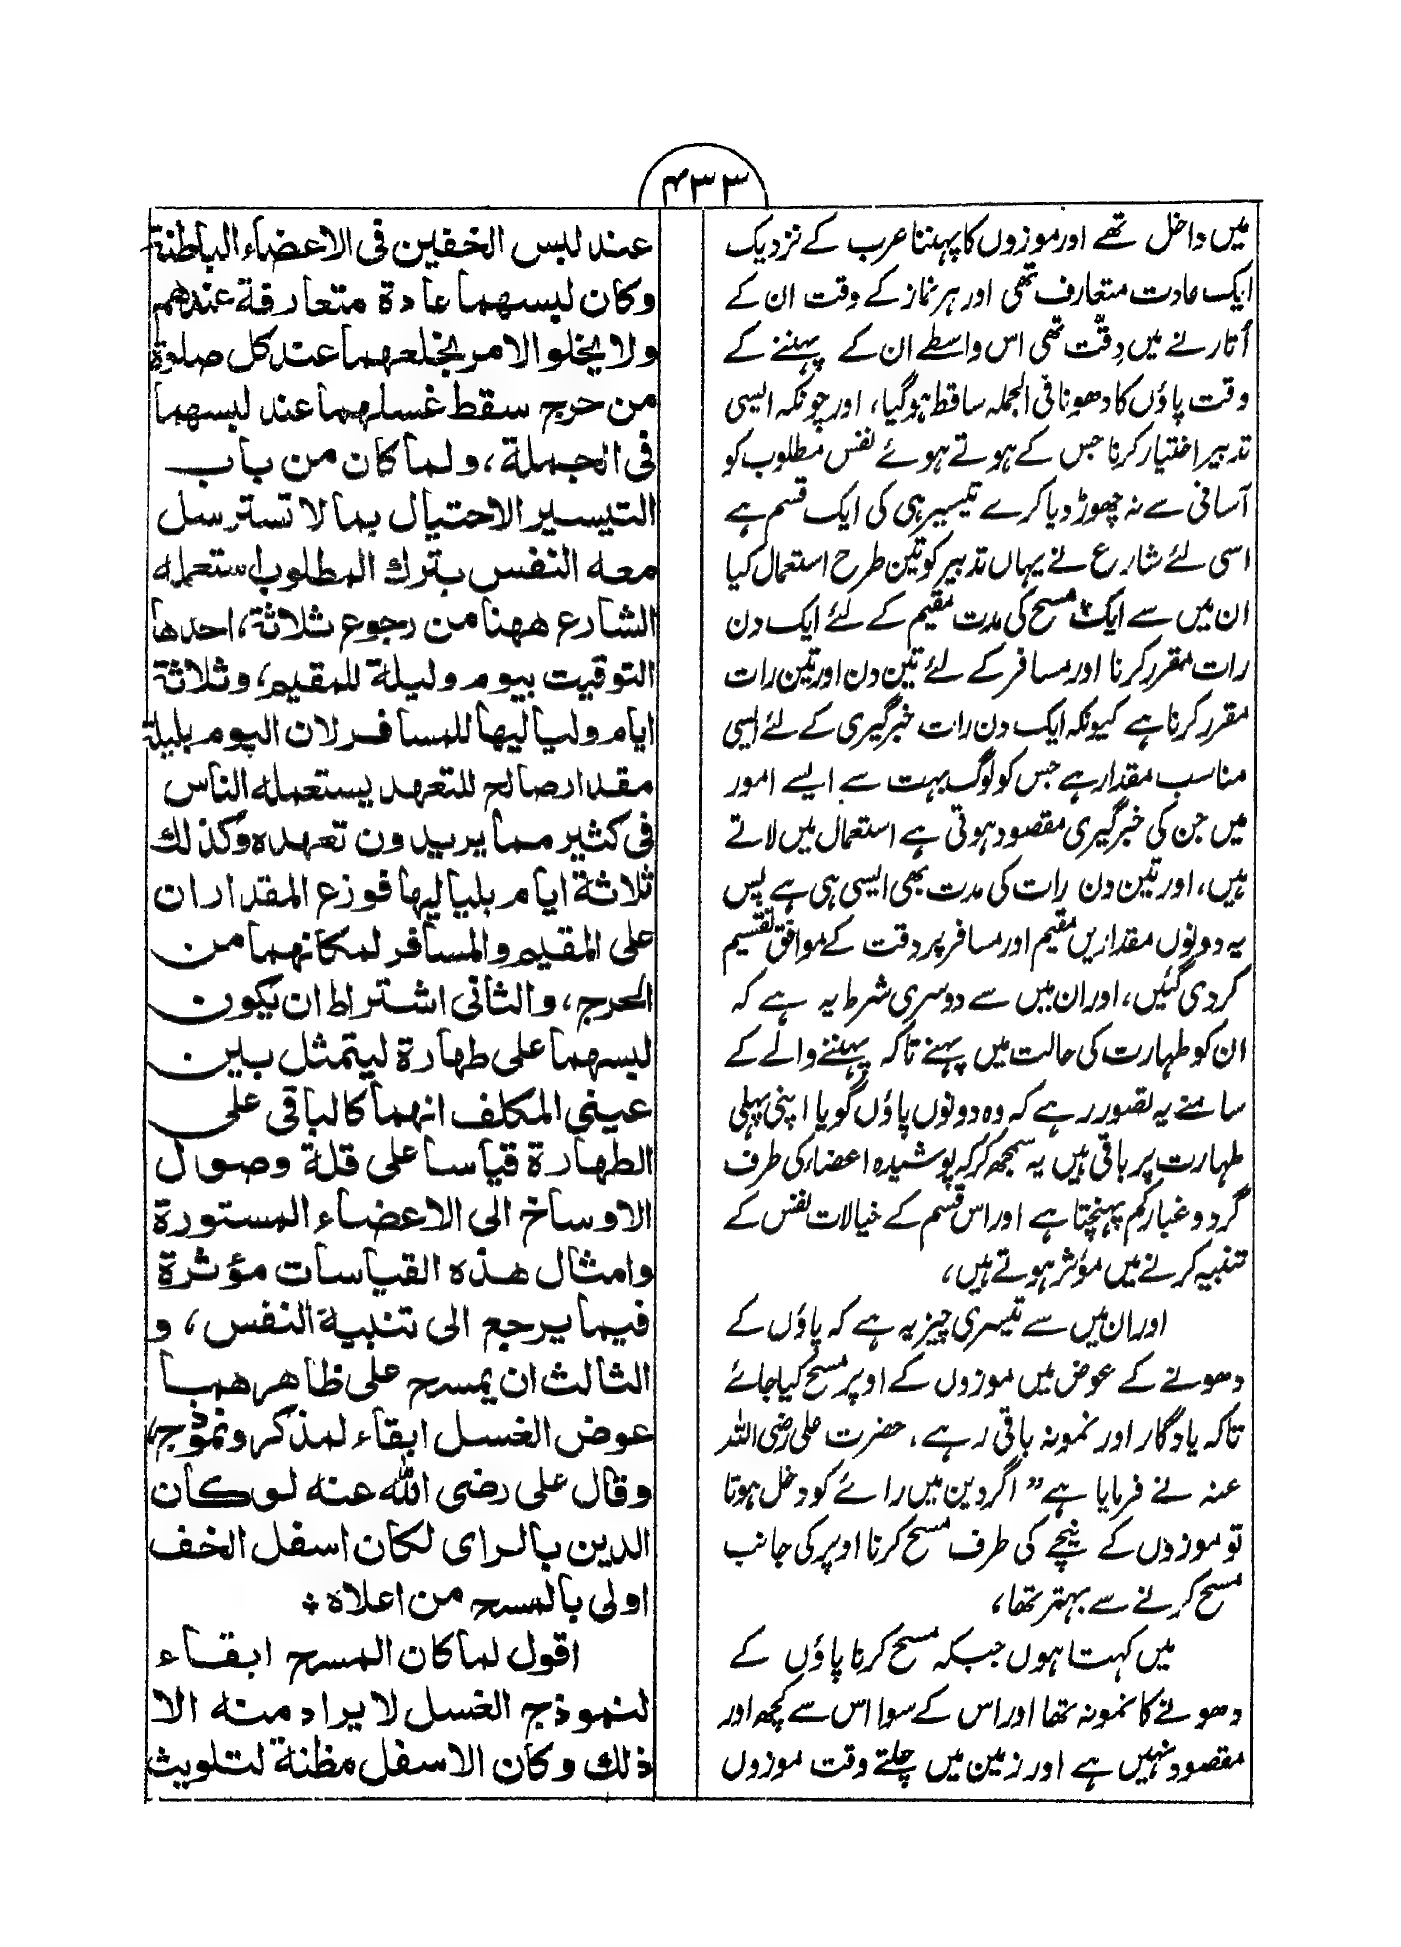 ۴۳۳
میں داخل تھے اور موزوں کا پہننا عرب کے نزدیک
ایک عادت متعارف تھی اور ہر نماز کے وقت ان کے
اُتارنے میں دِقّت تھی اس واسطے ان کے پہننے کے
وقت پاؤں کا دھونا فی الجملہ ساقط ہوگیا، اور چونکہ ایسی
تدبیر اختیار کرنا جس کے ہوتے ہوئے نفس مطلوب کو
آسانی سے نہ چھوڑ دیا کرے تیسیر ہی کی ایک قسم ہے
اسی لئے شارع نے یہاں تدبیر کو تین طرح استعمال کیا
ان میں سے ایک مسح کی مدت مقیم کے لئے ایک دن
رات مقرر کرنا اور مسافر کے لئے تین دن اور تین رات
مقرر کرنا ہے کیونکہ ایک دن رات خبرگیری کے لئے ایسی
مناسب مقدار ہے جس کو لوگ بہت سے ایسے امور
میں جن کی خبرگیری مقصود ہوتی ہے استعمال میں لاتے
ہیں، اور تین دن رات کی مدت بھی ایسی ہی ہے پس
یہ دونوں مقداریں مقیم اور مسافر پر دقت کے موافق تقسیم
کردی گئیں، اور ان میں سے دوسری شرط یہ ہے کہ
ان کو طہارت کی حالت میں پہنے تاکہ پہننے والے کے
سامنے یہ تصور رہے کہ وہ دونوں پاؤں گویا اپنی پہلی
طہارت پر باقی ہیں یہ سمجھ کر کہ پوشیدہ اعضاء کی طرف
گرد و غبار کم پہنچتا ہے اور اس قسم کے خیالات نفس کے
تنبیہ کرنے میں مؤثر ہوتے ہیں،
اور ان میں سے تیسری چیز یہ ہے کہ پاؤں کے
دھونے کے عوض میں موزوں کے اوپر مسح کیا جائے
تاکہ یادگار اور نمونہ باقی رہے، حضرت علی رضی اللہ
عنہ نے فرمایا ہے " اگر دین میں رائے کو دخل ہوتا
تو موزوں کے نیچے کی طرف مسح کرنا اوپر کی جانب
مسح کرنے سے بہتر تھا،
میں کہتا ہوں جبکہ مسح کرنا پاؤں کے
دھونے کا نمونہ تھا اور اس کے سوا اس سے کچھ اور
مقصود نہیں ہے اور زمین میں چلتے وقت موزوں
عند لبس الخفين فى الاعضاء الباطنة
وكان لبسهما عادة متعارفة عندهم
ولا يخلو الامر بخلعهما عند كل صلوة
من حرج سقط غسلهما عند لبسهما
فى الجملة، ولما كان من باب
التيسير الاحتيال بما لا تسترسل
معه النفس بترك المطلوب استعمله
الشارع ههنا من رجوع ثلاثة، احدها
التوقيت بيوم وليلة للمقيم، وثلاثة
ايام ولياليها للمسافر لان اليوم بليلة
مقدار صالح للتعهد يستعمله الناس
فى كثير مما يريدون تعهده وكذلك
ثلاثة ايام بلياليها فوزع المقداران
على المقيم والمسافر لمكانهما من
الحرج، والثانى اشتراط ان يكون
لبسهما على طهارة ليتمثل بين
عينى المكلف انهما كالباقى على
الطهارة قياسا على قلة وصول
الاوساخ الى الاعضاء المستورة
وامثال هذه القياسات مؤثرة
فيما يرجع الى تنبية النفس، و
الثالث ان يمسح على ظاهرهبا
عوض الغسل ابقاء لمذكر ونموذج،
وقال على رضى الله عنه لوكان
الدين بالراى لكان اسفل الخف
اولى بالمسح من اعلاه ؞
اقول لما كان المسح ابقاء
لنموذج الغسل لا يراد منه الا
ذلك وكان الاسفل مظنة لتلويث